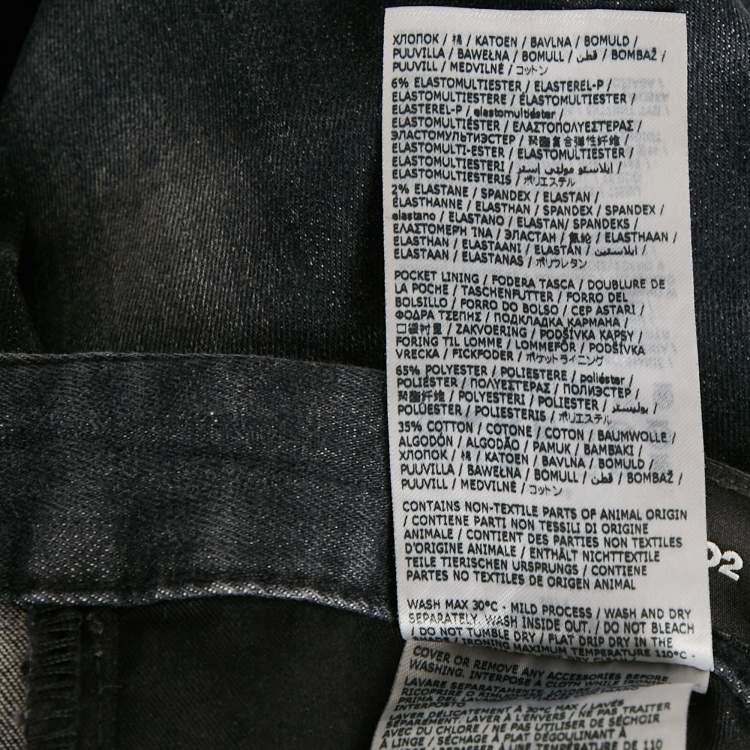 ХЛОПОК / 棉 / KATOEN / BAVLNA / BOMULD /
PUUVILLA / BAWEŁNA / BOMULL / قطن / BOMBAŽ /
PUUVILL / MEDVILNĖ / コットン
6% ELASTOMULTIESTER / ELASTEREL-P /
ELASTOMULTIESTERE / ELASTOMULTIESTER /
ELASTEREL-P / elastomultiéster /
ELASTOMULTIÉSTER / ΕΛΑΣΤΟΠΟΛΥΕΣΤΕΡΑΣ /
ЭЛАСТОМУЛЬТИЭСТЕР / 聚酯复合弹性纤维 /
ELASTOMULTI-ESTER / ELASTOMULTIESTER /
ELASTOMULTIESTERI / ايلاستو مولتي استر /
ELASTOMULTIESTERIS / ポリエステル
2% ELASTANE / SPANDEX / ELASTAN /
ELASTHANNE / ELASTHAN / SPANDEX / SPANDEX /
elastano / ELASTANO / ELASTAN/ SPANDEKS /
ΕΛΑΣΤΟΜΕΡΗ ΊΝΑ / ЭЛАСТАН / 氨纶 / ELASTHAAN /
ELASTHAN / ELASTAANI / ELASTÁN / ايلاستين /
ELASTAAN / ELASTANAS / ポリウレタン
POCKET LINING / FODERA TASCA / DOUBLURE DE
LA POCHE / TASCHENFUTTER / FORRO DEL
BOLSILLO / FORRO DO BOLSO / CEP ASTARI /
ΦΟΔΡΑ ΤΣΕΠΗΣ / ПОДКЛАДКА КАРМАНА /
口袋衬里 / ZAKVOERING / PODŠÍVKA KAPSY /
FORING TIL LOMME / LOMMEFÔR / PODŠÍVKA
VRECKA / FICKFODER / ポケットライニング
65% POLYESTER / POLIESTERE / poliéster /
POLIÉSTER / ΠΟΛΥΕΣΤΕΡΑΣ / ПОЛИЭСТЕР /
聚酯纤维 / POLYESTERI / POLIESTER / بوليستر /
POLÜESTER / POLIESTERIS / ポリエステル
35% COTTON / COTONE / COTON / BAUMWOLLE /
ALGODÓN / ALGODÃO / PAMUK / ΒΑΜΒΑΚΙ /
ХЛОПОК / 棉 / KATOEN / BAVLNA / BOMULD /
PUUVILLA / BAWEŁNA / BOMULL / قطن / BOMBAŽ /
PUUVILL / MEDVILNĖ / コットン
CONTAINS NON-TEXTILE PARTS OF ANIMAL ORIGIN
/ CONTIENE PARTI NON TESSILI DI ORIGINE
ANIMALE / CONTIENT DES PARTIES NON TEXTILES
D'ORIGINE ANIMALE / ENTHÄLT NICHTTEXTILE
TEILE TIERISCHEN URSPRUNGS / CONTIENE
PARTES NO TEXTILES DE ORIGEN ANIMAL
WASH MAX 30°C - MILD PROCESS / WASH AND DRY
SEPARATELY. WASH INSIDE OUT. / DO NOT BLEACH
/ DO NOT TUMBLE DRY / FLAT DRIP DRY IN THE
SHADE / IRONING MAXIMUM TEMPERATURE 110°C -
COVER OR REMOVE ANY ACCESSORIES BEFORE
WASHING. INTERPOSE A CLOTH WHILE IRONING
LAVARE SEPARATAMENTE
RICOPRIRE O
INTERPOSTO
LAVER DÉLICATEMENT À 30°C MAX / LAVER
SÉPARÉMENT. LAVER À L'ENVERS / NE PAS TRAITER
AVEC DU CHLORE / NE PAS UTILISER DE SÈCHE
À LINGE / SÉCHAGE À PLAT DÉGOULINANT À
TEMPÉRATURE DE 110
02